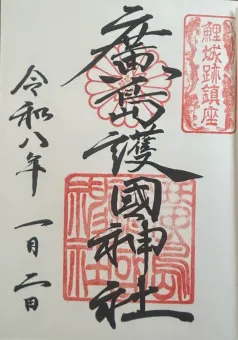 鯉城跡鎮座
廣島護國神社
令和八年
一月二日